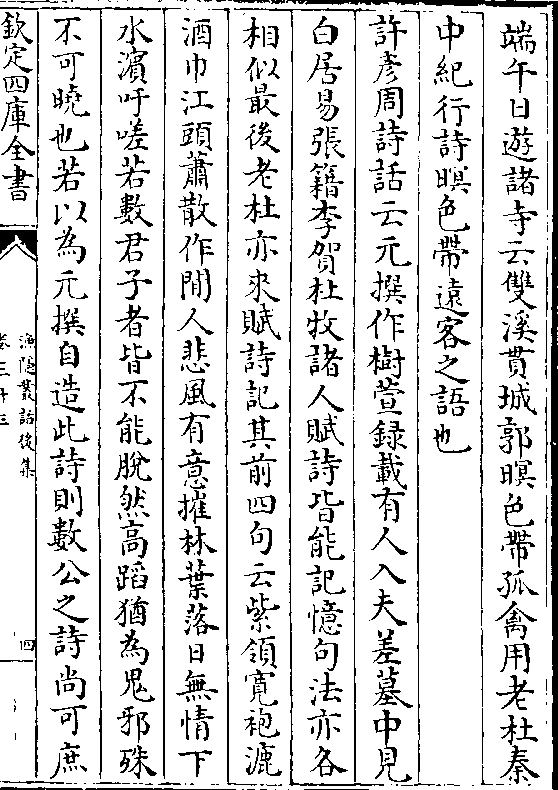 端午日遊諸寺云雙溪貫城郭暝色帶孤禽用老杜秦
中紀行詩暝色帶遠客之語也
許彥周詩話云元撰作樹萱録載有人入夫差墓中見
白居易張籍李賀杜牧諸人賦詩皆能記憶句法亦各
相似最後老杜亦來賦詩記其前四句云紫領寛袍漉
酒巾江頭蕭散作閒人悲風有意摧林葉落日無情下
水濵吁嗟若數君子者皆不能脫然高蹈猶為鬼邪殊
不可曉也若以為元撰自造此詩則數公之詩尚可庶
欽定四庫全書
漁隱叢話後集
卷三十三
四